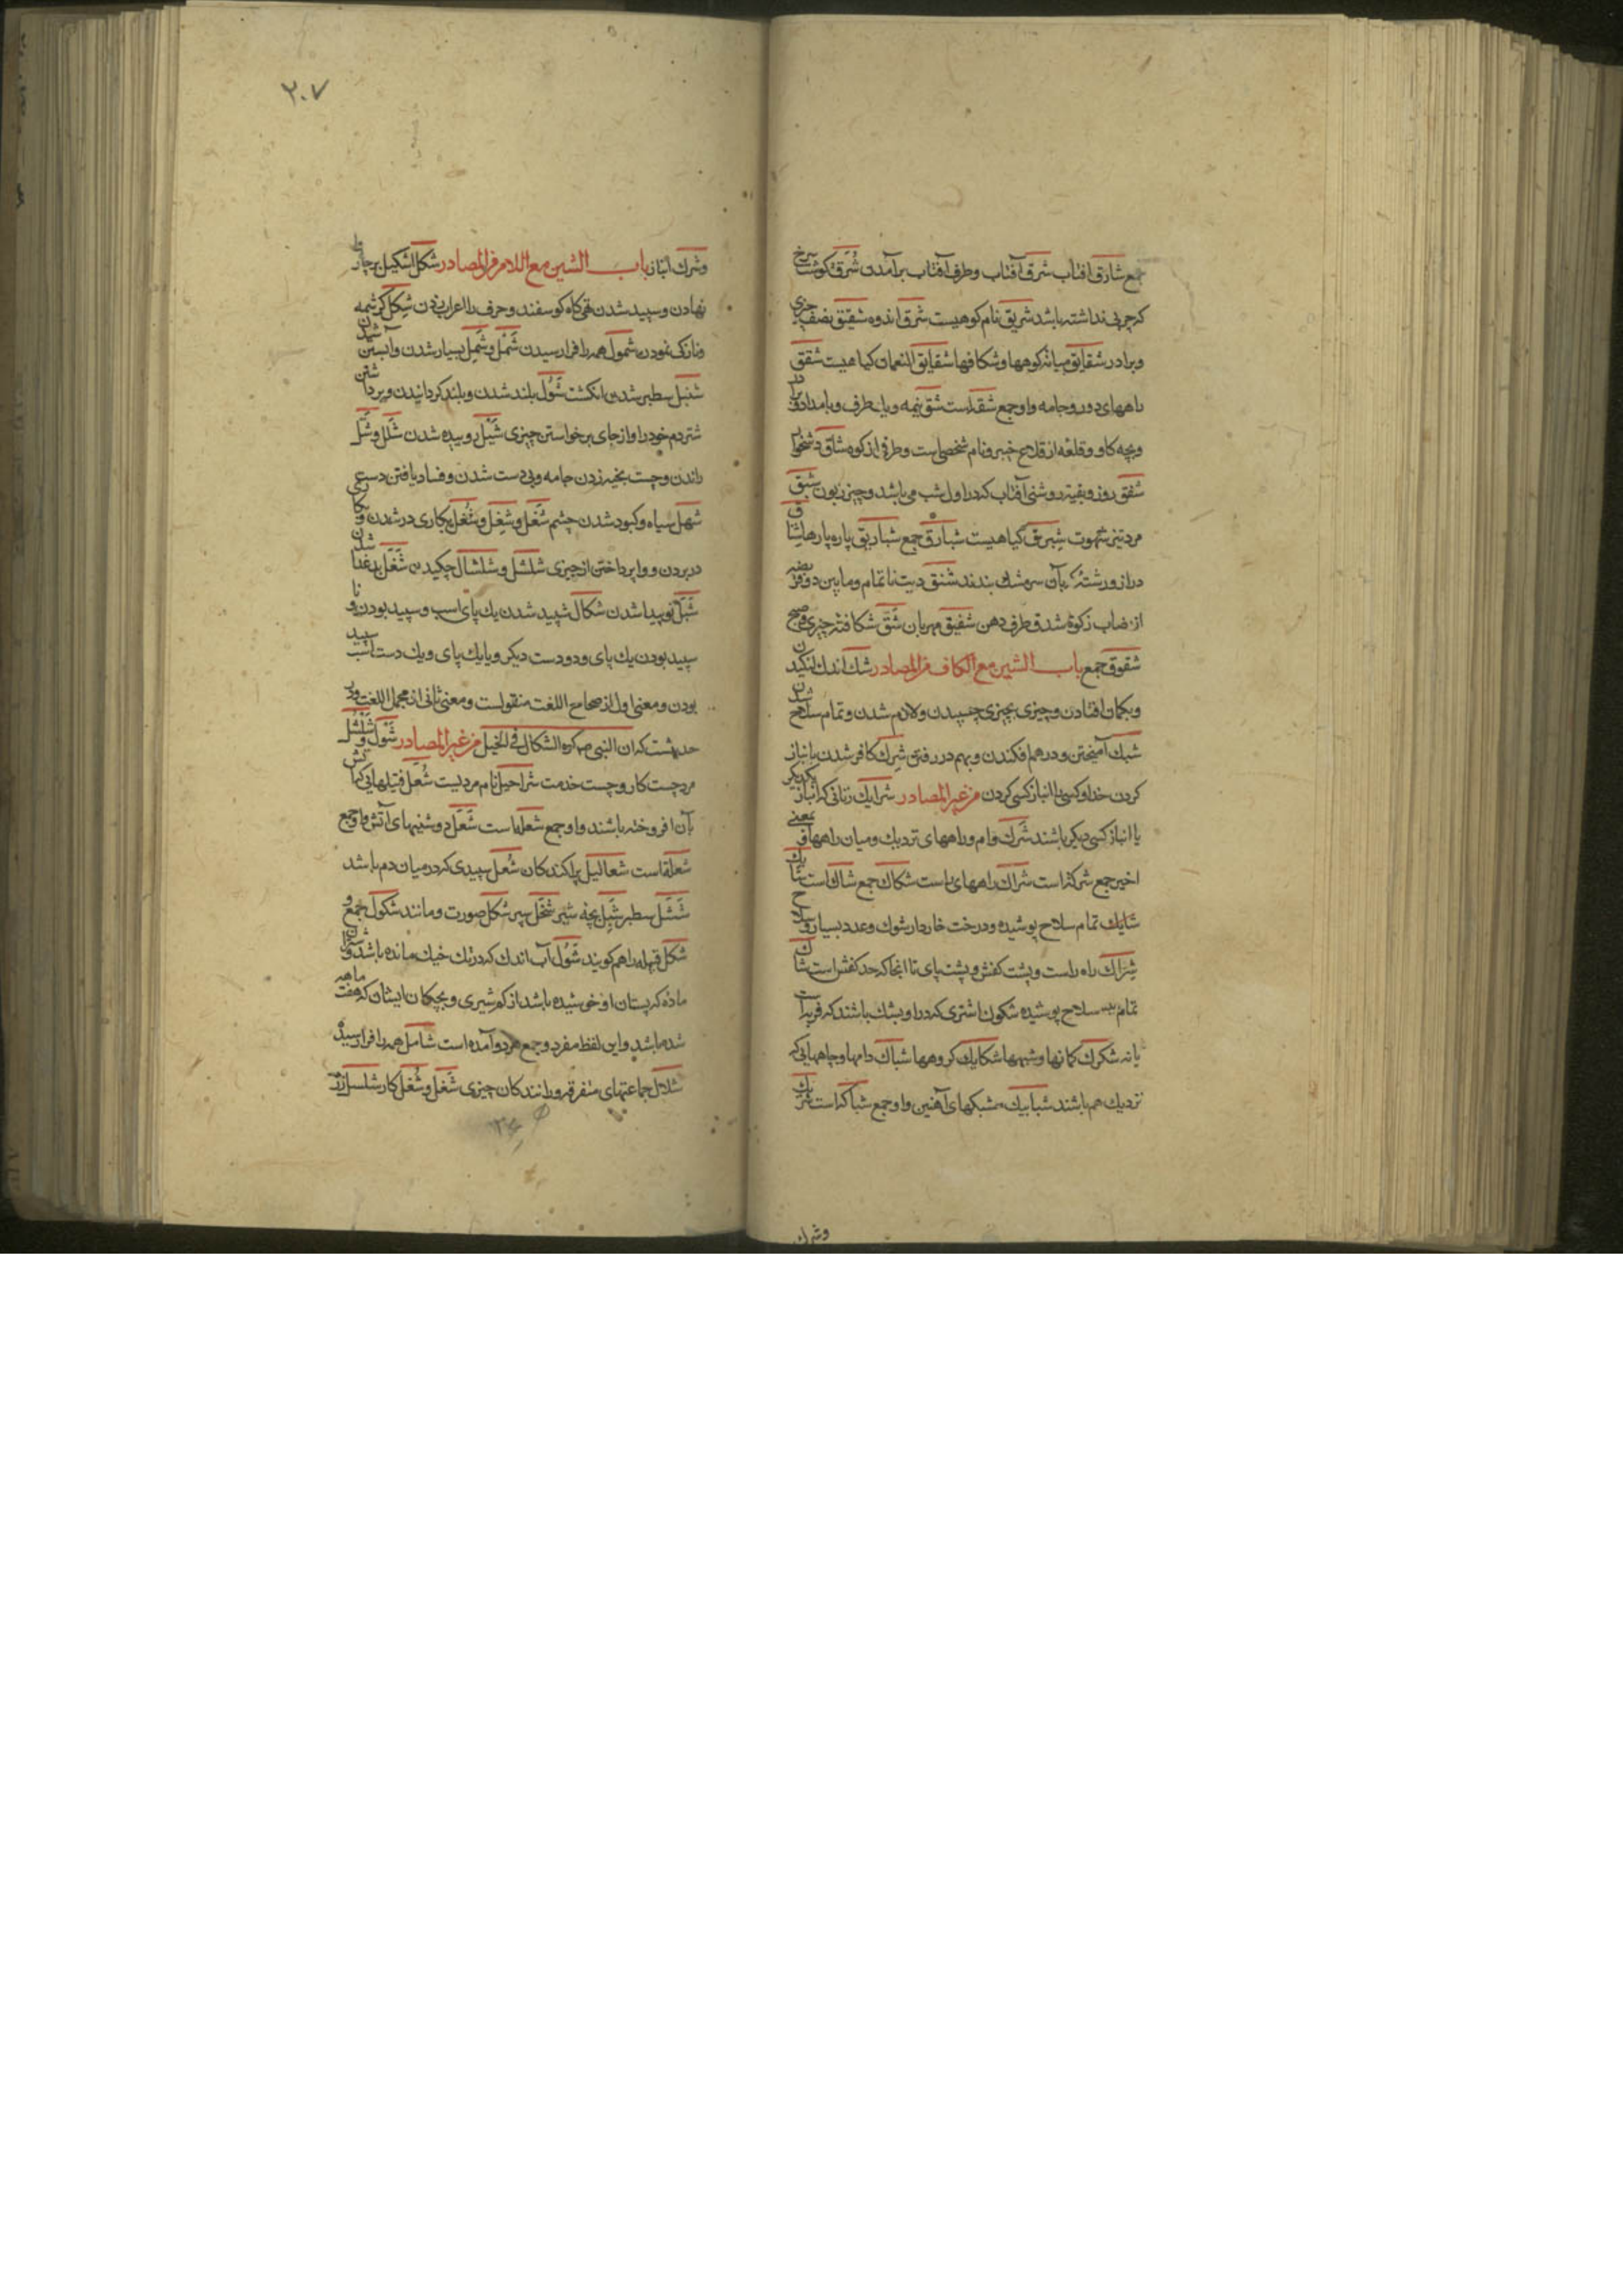 جمع شارق آفتاب شرق آفتاب وطرف آفتاب برآمدن شرق گوشت سرخ
که چربی نداشته باشد شریق نام کوهیست شرق اندوه شقیق نصف چیزی
وبرادر شقایق میانهٔ کوهها وشکافها شقایق النعمان کیاهیست شقق
راههای دور وجامه واو جمع شقه است شق نیمه ویک طرف وبامداد
وبچه کاو وقلعه از قلاع خیبر ونام شخصی است وطرفی از کوه شاق دشخوار
شفق روز وبقیه روشنی آفتاب که در اول شب می باشد وچیز زبون شبق
مرد تیز شهوت شبرق کیاهیست شبارق جمع شباریق پاره پارها
دراز ورشتهٔ که بآن سر مشک بندند شنق دیت ناتمام ومابین دو فریضه
از نصاب زکوة شدق طرف دهن شفیق مهربان شق شکافته چیزی
شقوق جمع باب الشین مع الکاف من المصادر شک اندک لنکیدن
وبکمان افتادن وچیزی بچیزی چسپیدن ولازم شدن وتمام سلاح شدن
شبک آمیختن ودرهم افکندن وبهم در رفتن شرک کافر شدن بانباز
کردن خدا وکسی با انباز کسی کردن من غیر المصادر شرایک زنانی که انباز یکدیکر
یا انباز کسی دیکر باشند شرک دام وراههای نزدیک ومیان راهها وبمعنی
اخیر جمع شرکة است شراک راههای راست شکاک جمع شاک است
شایک تمام سلاح پوشیده ودرخت خاردار شوک وعدد بسیار وسلاح
شراک راه راست وپشت کفش وپشت پای تا انجا که حد کفش است شاک
تمام سلاح پوشیده شکوک اشتری که در او بشک باشند که فربه است
یا نه شکوک کمانها وشبهها شکایک کروهها شباک دامها وچاههایی که
نزدیک هم باشند شبابیک مشبکهای آهنین واو جمع شباکه است شریک
وشرک
۲۰۷
وشرک انباز باب الشین مع اللام من المصادر شکل اشکیل بر چاروا
نهادن وسپید شدن تهی کاه کوسفند وحرف را اعراب زدن شکل کرشمه
ونازکی نمودن شمول همه را فرا رسیدن شمل وشمل بسیار شدن وآبستن شدن
شثل سطبر شدن انکشت شول بلند شدن وبلند کردانیدن وبرداشتن
شتر دم خود را واز جای برخواستن چیزی شلل وشل
راندن وچست بخیه زدن جامه وبی دست شدن وفساد یافتن دست
شهل سیاه وکبود شدن چشم شغل وشغل وشغل بکاری در شدن
در بردن ووا پرداختن از چیزی شلشل وشلشال چکیدن شغل
شکال سپید شدن یک پای اسب وسپید بودن
سپید بودن یک پای ودو دست دیکر ویا یک پای ویک دست اسب سپید
بودن ومعنی اول از صحاح اللغت منقولست ومعنی ثانی از مجمل اللغت ودر
حدیثست که ان النبی صم کره الشکال فی الخیل من غیر المصادر شول وشلشل
مرد چست کار وچست خدمت شراحیل نام مردیست شعل فتیلهایی که آتش
بآن افروخته باشند واو جمع شعیله است شعل روشنیهای آتش واو جمع
شعله است شعالیل پراکندکان شعل سپیدی که در میان دم باشد
شثل سطبر شبل بچه شیر شکل صورت ومانند شکول جمع
شکل قبیله را هم کویند شول آب اندک که در تک خیک مانده باشد
مادهٔ که پستان او خوشیده باشد از کم شیری وبچکان ایشان که هفت ماهه
شده باشد واین لفظ مفرد وجمع هر دو آمده است شامل همه را فرا رسیده
شلال جماعتهای متفرقه ورانندکان چیزی شغل وشغل کار شلسل